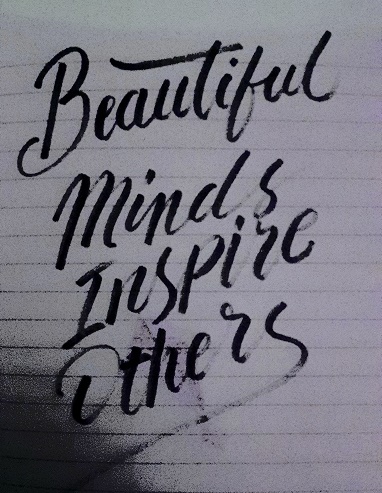 Beautiful
Minds
Inspire
Others